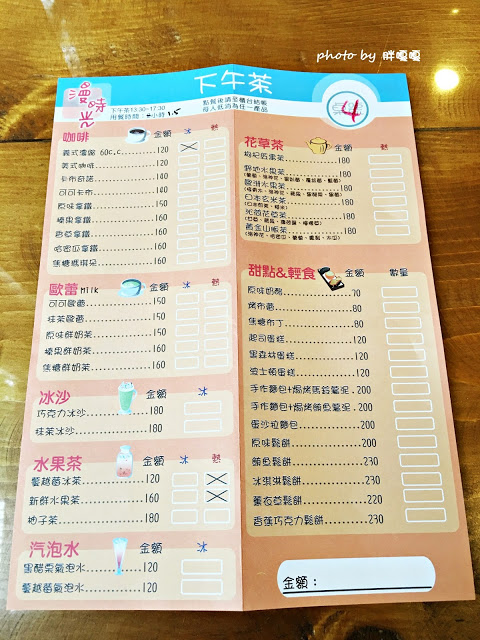 photo by 胖嘎嘎
漫時光
下午茶
下午茶13:30~17:30
點餐後請至櫃台結帳
每人低消為任一產品
4
咖啡 金額 冰 熱
義式濃縮 60c.c. 120
美式咖啡 120
卡布奇諾 140
可可卡布 140
原味拿鐵 150
榛果拿鐵 160
香草拿鐵 160
哈密瓜拿鐵 160
焦糖瑪琪朵 160
歐蕾Milk 金額 冰 熱
可可歐蕾 150
抹茶歐蕾 150
原味鮮奶茶 150
榛果鮮奶茶 160
焦糖鮮奶茶 160
冰沙 金額 冰
巧克力冰沙 180
抹茶冰沙 180
水果茶 金額 冰 熱
蔓越莓冰茶 120
新鮮水果茶 160
柚子茶 180
汽泡水 金額 冰
黑醋栗氣泡水 120
蔓越莓氣泡水 120
花草茶 金額
枸杞菊棗茶 180
綜光水果茶 180
歐洲水果茶 180
日本玄米茶 180
光茵花草茶 180
黃金山楂茶 180
甜點&輕食 金額 數量
原味奶酪 70
烤布蕾 80
焦糖布丁 80
起司蛋糕 120
黑森林蛋糕 120
波士頓蛋糕 120
手作麵包+焗烤馬鈴薯泥 200
手作麵包+焗烤鮪魚薯泥 200
蜜沙拉麵包 200
原味鬆餅 200
鮪魚鬆餅 230
冰淇淋鬆餅 230
薰衣草鬆餅 200
香蕉巧克力鬆餅 230
金額：